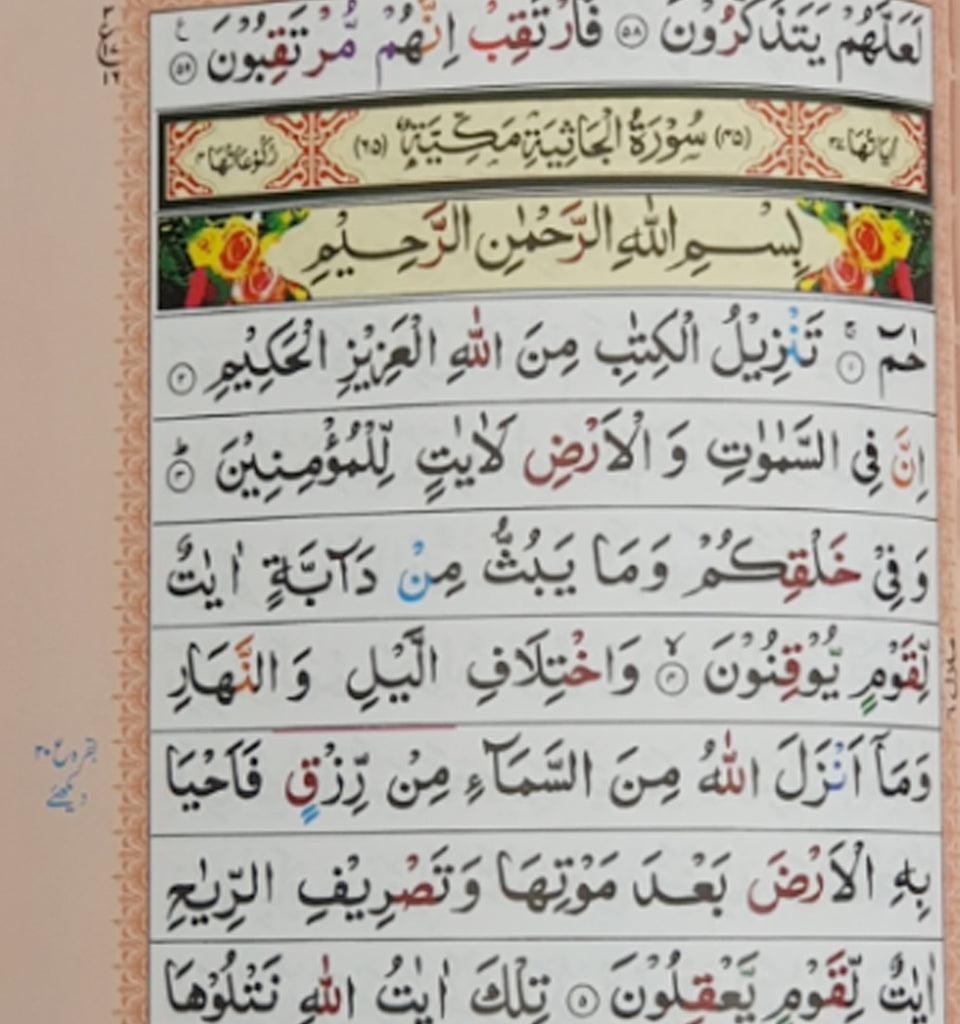 لَعَلَّهُمْ يَتَذَكَّرُوْنَ ۵۸ فَارْتَقِبْ اِنَّهُمْ مُّرْتَقِبُوْنَ ۵۹
اٰيَاتُهَا ۳۷ (۴۵) سُوْرَةُ الْجَاثِيَةِ مَكِّيَّةٌ (۶۵) رُكُوْعَاتُهَا ۴
بِسْمِ اللّٰهِ الرَّحْمٰنِ الرَّحِيْمِ
حٰمٓ ۱ تَنْزِيْلُ الْكِتٰبِ مِنَ اللّٰهِ الْعَزِيْزِ الْحَكِيْمِ ۲
اِنَّ فِي السَّمٰوٰتِ وَ الْاَرْضِ لَاٰيٰتٍ لِّلْمُؤْمِنِيْنَ ۳
وَ فِيْ خَلْقِكُمْ وَمَا يَبُثُّ مِنْ دَآبَّةٍ اٰيٰتٌ
لِّقَوْمٍ يُّوْقِنُوْنَ ۴ وَاخْتِلَافِ الَّيْلِ وَ النَّهَارِ
وَمَآ اَنْزَلَ اللّٰهُ مِنَ السَّمَآءِ مِنْ رِّزْقٍ فَاَحْيَا
بِهِ الْاَرْضَ بَعْدَ مَوْتِهَا وَتَصْرِيْفِ الرِّيٰحِ
اٰيٰتٌ لِّقَوْمٍ يَّعْقِلُوْنَ ۵ تِلْكَ اٰيٰتُ اللّٰهِ نَتْلُوْهَا